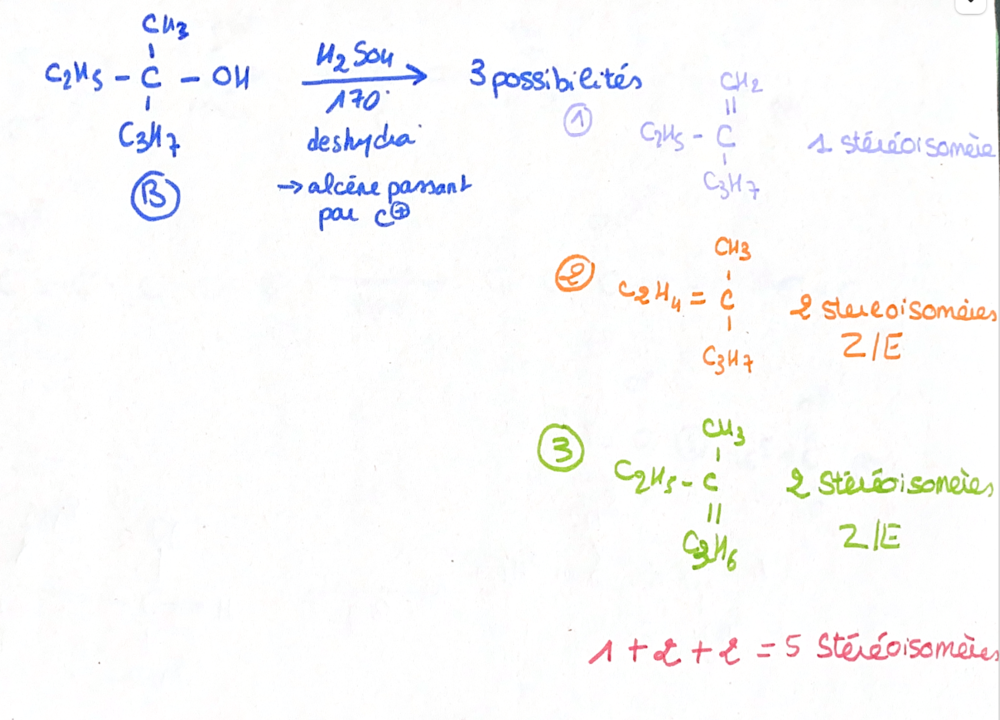 CH3
C2H5 - C - OH
C3H7
B
H2SO4
170°
deshydra°
→ alcène passant
par C⊕
3 possibilités
①
CH2
||
C2H5 - C
C3H7
1 stéréoisomère
②
CH3
C2H4 = C
C3H7
2 stereoisomères
Z/E
③
CH3
C2H5 - C
||
C3H6
2 Stéréoisomères
Z/E
1 + 2 + 2 = 5 Stéréoisomères